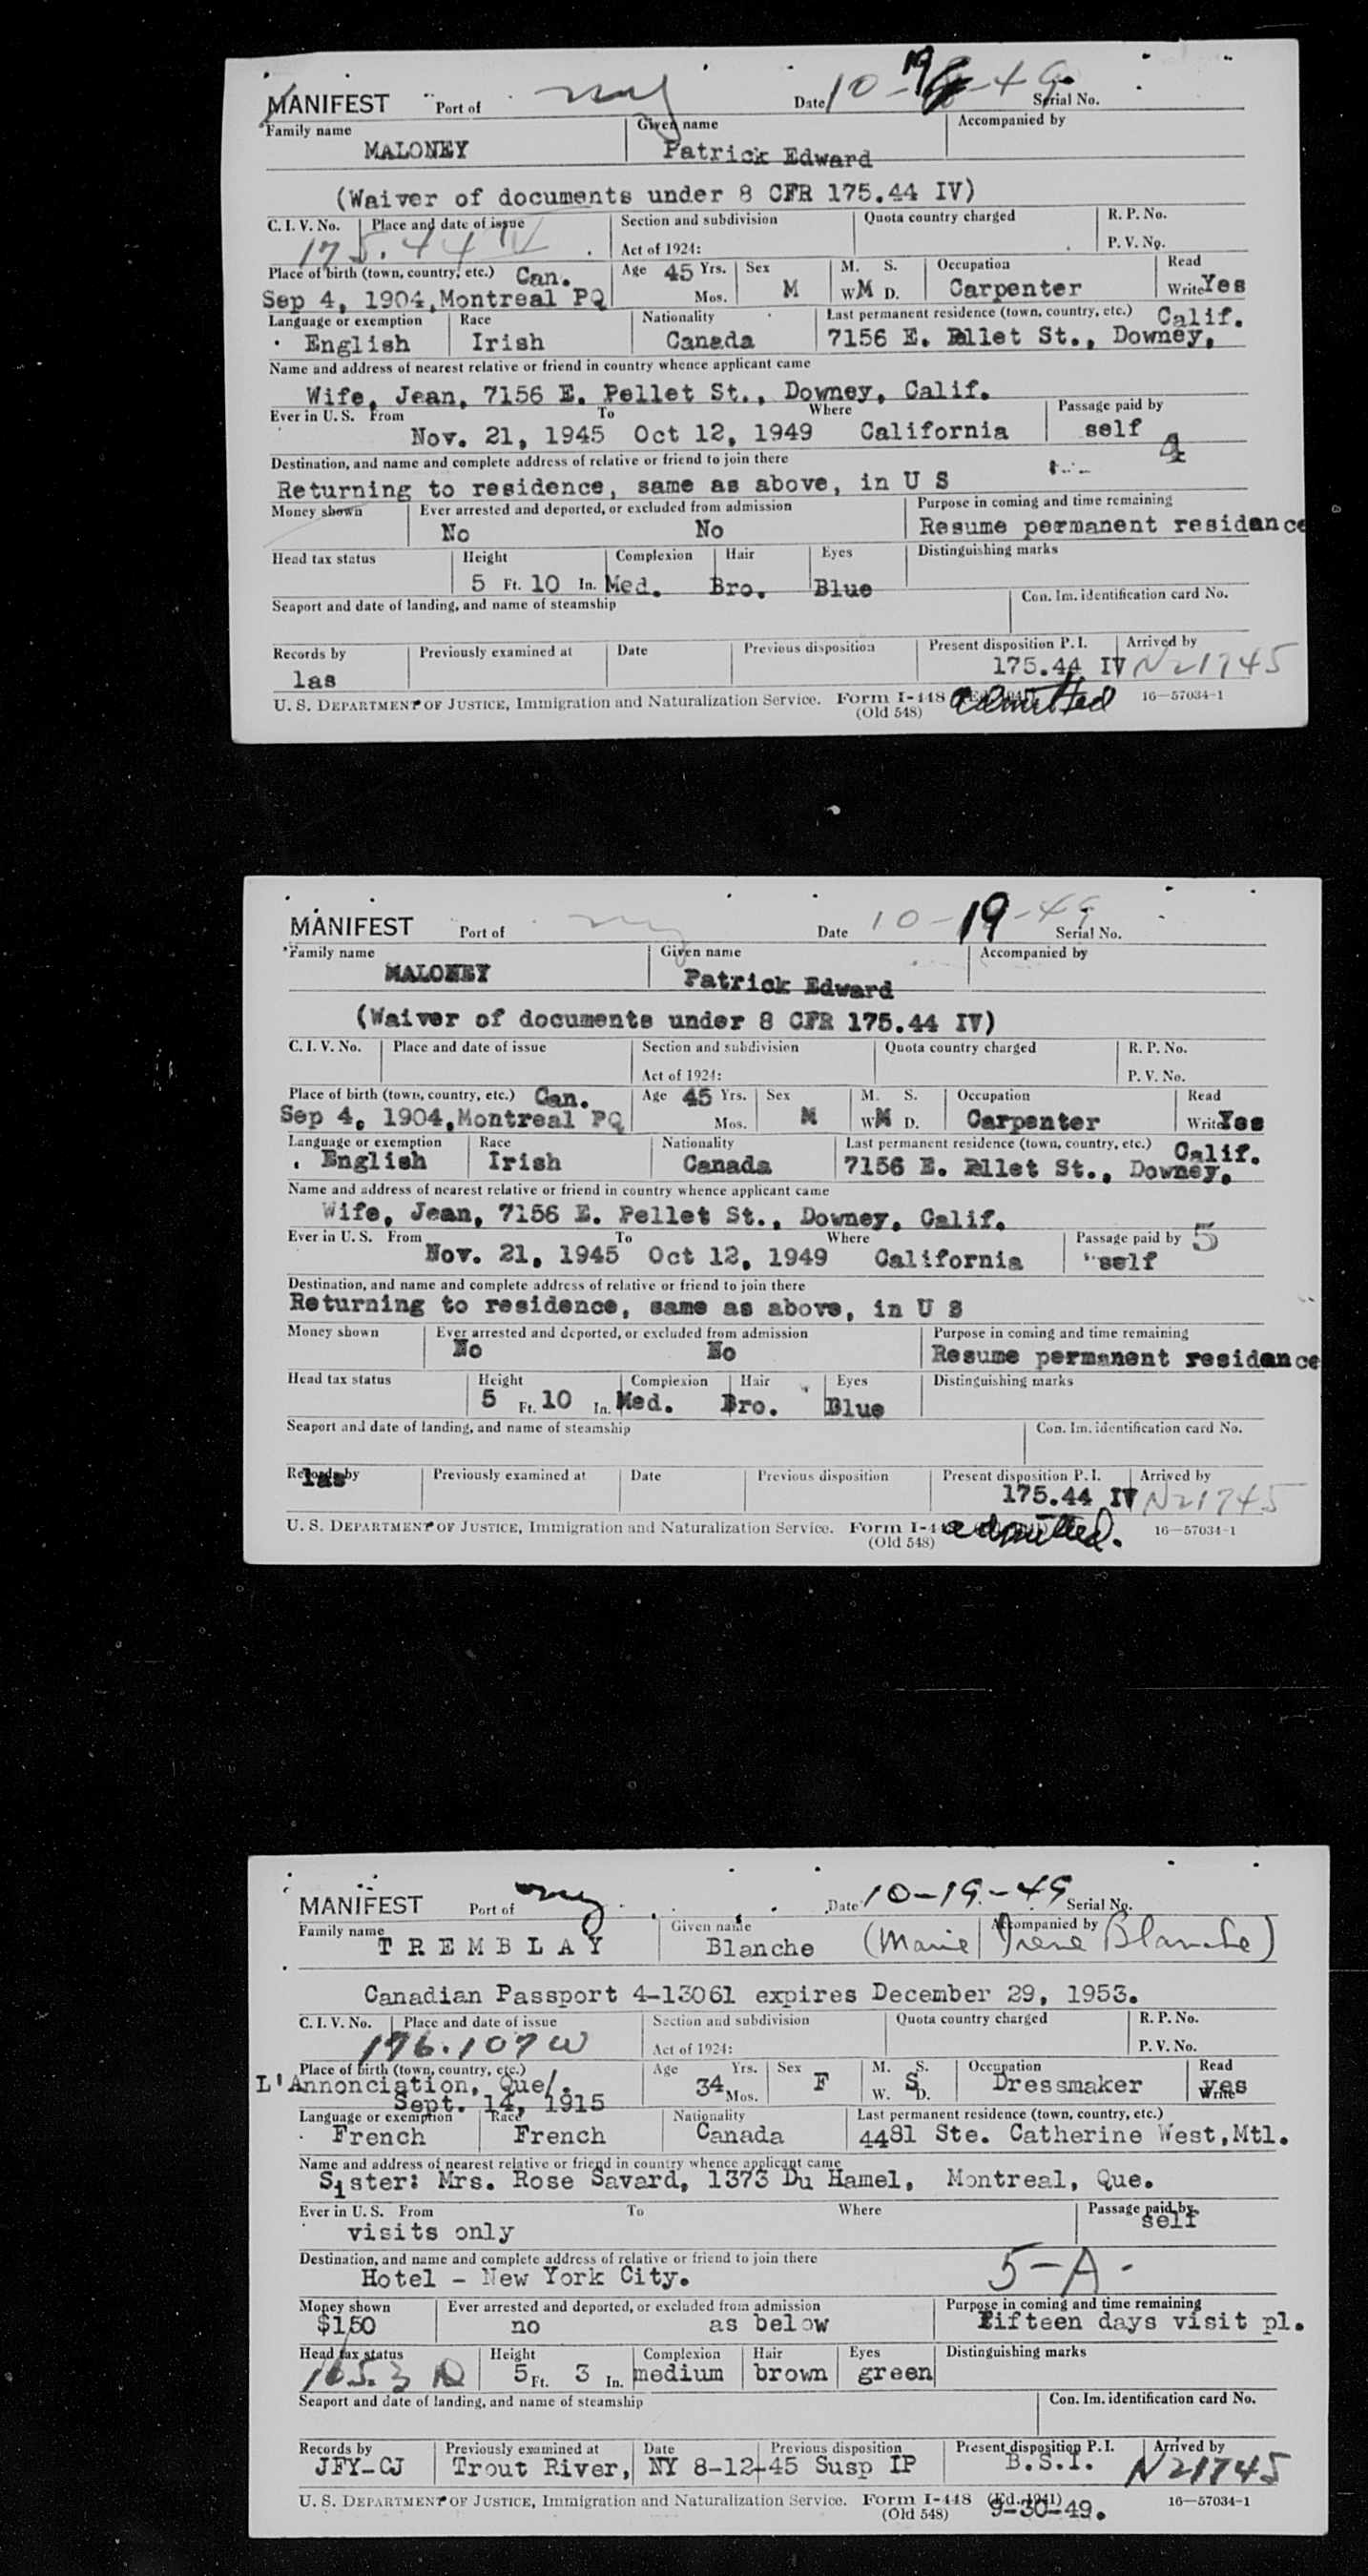 MANIFEST Port of ny Date 10-19-49 Serial No.
Family name Given name Accompanied by
MALONEY Patrick Edward
(Waiver of documents under 8 CFR 175.44 IV)
C. I. V. No. Place and date of issue Section and subdivision Quota country charged R. P. No.
175.44 IV Act of 1924: P. V. No.
Place of birth (town, country, etc.) Can. Age 45 Yrs. Sex M. S. Occupation Read
Sep 4, 1904, Montreal PQ Mos. M W M D. Carpenter Write Yes
Language or exemption Race Nationality Last permanent residence (town, country, etc.) Calif.
English Irish Canada 7156 E. Pellet St., Downey,
Name and address of nearest relative or friend in country whence applicant came
Wife, Jean, 7156 E. Pellet St., Downey, Calif.
Ever in U. S. From To Where Passage paid by
Nov. 21, 1945 Oct 12, 1949 California self 4
Destination, and name and complete address of relative or friend to join there
Returning to residence, same as above, in U S
Money shown Ever arrested and deported, or excluded from admission Purpose in coming and time remaining
No No Resume permanent residance
Head tax status Height Complexion Hair Eyes Distinguishing marks
5 Ft. 10 In. Med. Bro. Blue
Seaport and date of landing, and name of steamship Con. Im. identification card No.
Records by Previously examined at Date Previous disposition Present disposition P. I. Arrived by
las 175.44 IV N21745
U. S. DEPARTMENT OF JUSTICE, Immigration and Naturalization Service. Form I-448 admitted 16—57034-1
(Old 548)
MANIFEST Port of ny Date 10-19-49 Serial No.
Family name Given name Accompanied by
MALONEY Patrick Edward
(Waiver of documents under 8 CFR 175.44 IV)
C. I. V. No. Place and date of issue Section and subdivision Quota country charged R. P. No.
Act of 1924: P. V. No.
Place of birth (town, country, etc.) Can. Age 45 Yrs. Sex M. S. Occupation Read
Sep 4, 1904, Montreal PQ Mos. M W M D. Carpenter Write Yes
Language or exemption Race Nationality Last permanent residence (town, country, etc.) Calif.
English Irish Canada 7156 E. Pellet St., Downey,
Name and address of nearest relative or friend in country whence applicant came
Wife, Jean, 7156 E. Pellet St., Downey, Calif.
Ever in U. S. From To Where Passage paid by 5
Nov. 21, 1945 Oct 12, 1949 California self
Destination, and name and complete address of relative or friend to join there
Returning to residence, same as above, in U S
Money shown Ever arrested and deported, or excluded from admission Purpose in coming and time remaining
No No Resume permanent residance
Head tax status Height Complexion Hair Eyes Distinguishing marks
5 Ft. 10 In. Med. Bro. Blue
Seaport and date of landing, and name of steamship Con. Im. identification card No.
Records by Previously examined at Date Previous disposition Present disposition P. I. Arrived by
las 175.44 IV N21745
U. S. DEPARTMENT OF JUSTICE, Immigration and Naturalization Service. Form I-448 admitted. 16—57034-1
(Old 548)
MANIFEST Port of ny Date 10-19-49 Serial No.
Family name Given name Accompanied by
TREMBLAY Blanche (Marie Irene Blanche)
Canadian Passport 4-13061 expires December 29, 1953.
C. I. V. No. Place and date of issue Section and subdivision Quota country charged R. P. No.
176.107 W Act of 1924: P. V. No.
Place of birth (town, country, etc.) Age Yrs. Sex M. S. Occupation Read
L'Annonciation, Que/. 34 Mos. F W. S D. Dressmaker yes Write
Sept. 14, 1915
Language or exemption Race Nationality Last permanent residence (town, country, etc.)
French French Canada 4481 Ste. Catherine West, Mtl.
Name and address of nearest relative or friend in country whence applicant came
Sister: Mrs. Rose Savard, 1373 Du Hamel, Montreal, Que.
Ever in U. S. From To Where Passage paid by
visits only self
Destination, and name and complete address of relative or friend to join there
Hotel - New York City. 5-A-
Money shown Ever arrested and deported, or excluded from admission Purpose in coming and time remaining
$150 no as below Fifteen days visit pl.
Head tax status Height Complexion Hair Eyes Distinguishing marks
165.3 D 5 Ft. 3 In. medium brown green
Seaport and date of landing, and name of steamship Con. Im. identification card No.
Records by Previously examined at Date Previous disposition Present disposition P. I. Arrived by
JFY-CJ Trout River, NY 8-12-45 Susp IP B.S.I. N21745
U. S. DEPARTMENT OF JUSTICE, Immigration and Naturalization Service. Form I-448 (Ed. 1941) 16—57034-1
(Old 548) 9-30-49.